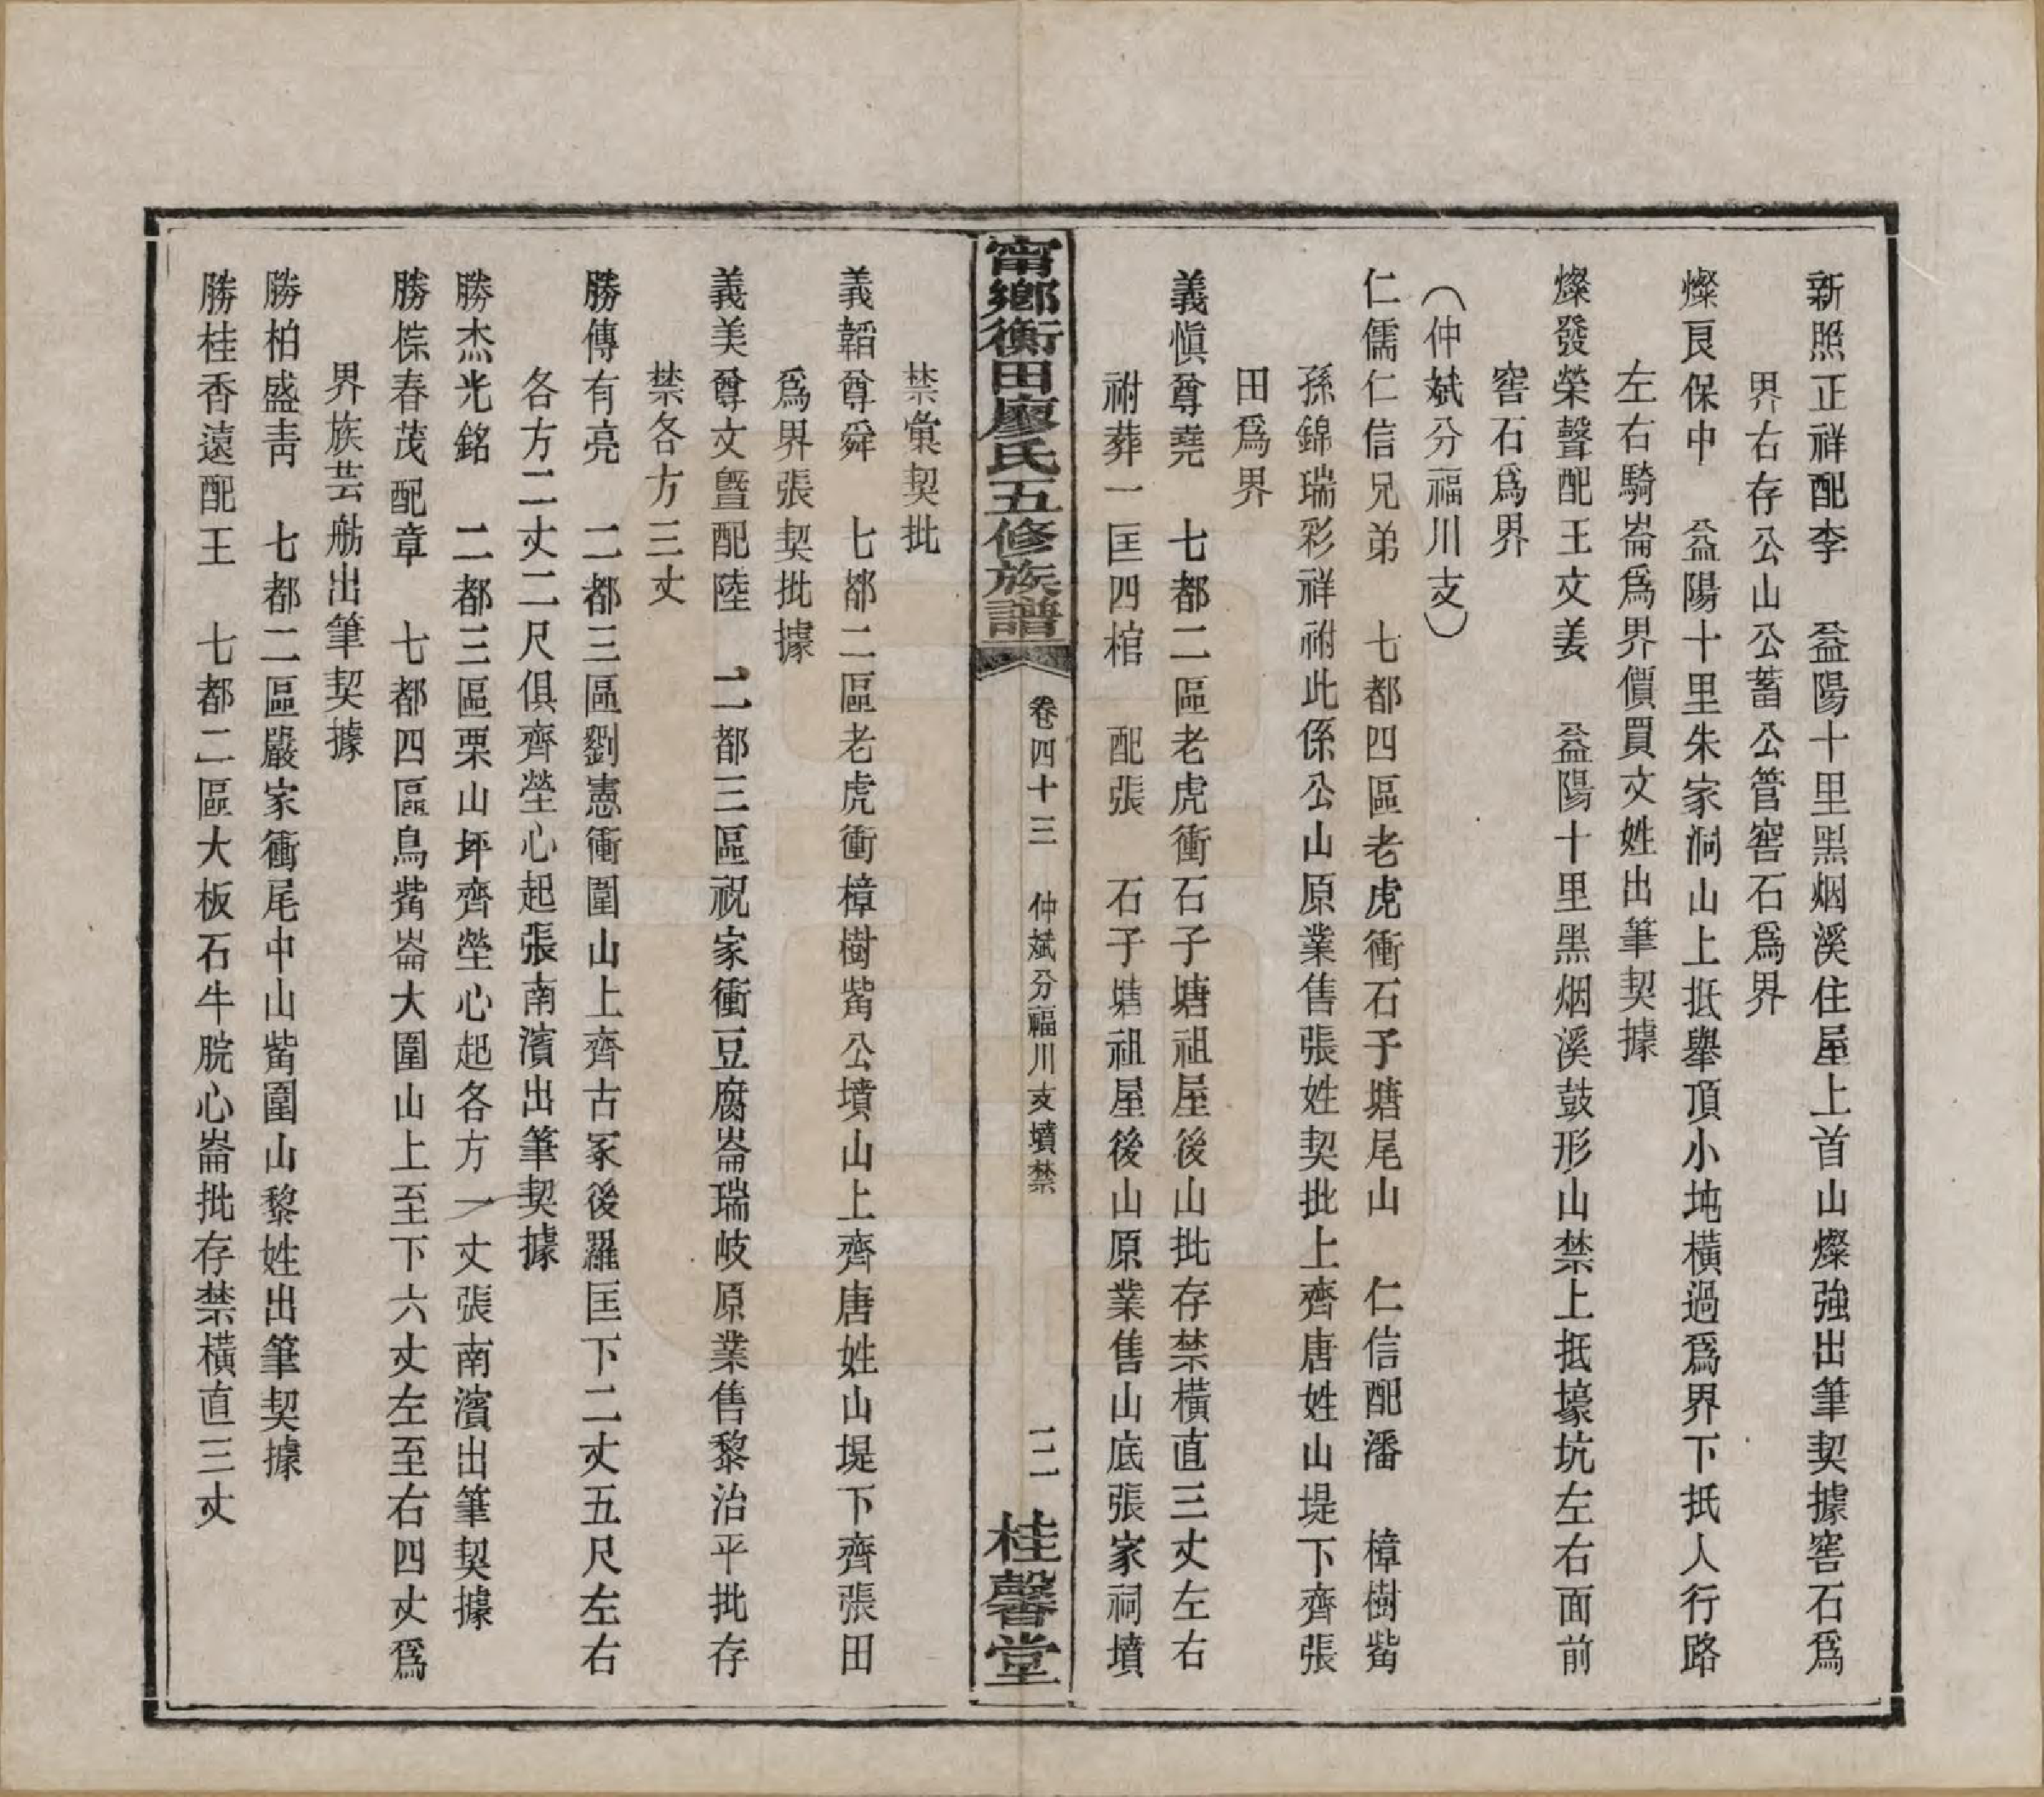 新照正祥配李　益陽十里黑烟溪住屋上首山燦強出筆契據窖石爲
界右存公山公蓄公管窖石爲界
燦良保中　益陽十里朱家洞山上抵舉頂小坉橫過爲界下抵人行路
左右騎崙爲界價買文姓出筆契據
燦發榮聲配王文姜　益陽十里黑烟溪鼓形山禁上抵壕坑左右面前
窖石爲界
（仲斌分福川支）
仁儒仁信兄弟　七都四區老虎衝石子塘尾山　仁信配潘　樟樹觜
孫錦瑞彩祥祔此係公山原業售張姓契批上齊唐姓山堤下齊張
田爲界
義愼尊堯　七都二區老虎衝石子塘祖屋後山批存禁橫直三丈左右
祔葬一匡四棺　配張　石子塘祖屋後山原業售山底張家祠墳
甯鄉衡田廖氏五修族譜
卷四十三　仲斌分福川支墳禁
二
桂馨堂
禁彙契批
義韜尊舜　七都二區老虎衝樟樹觜公墳山上齊唐姓山堤下齊張田
爲界張契批據
義美尊文曁配陸　二都三區祝家衝豆腐崙瑞岐原業售黎治平批存
禁各方三丈
勝傳有亮　二都三區劉憲衝圍山上齊古冢後羅匡下二丈五尺左右
各方二丈二尺俱齊塋心起張南濱出筆契據
勝杰光銘　二都三區栗山坪齊塋心起各方一丈張南濱出筆契據
勝悰春茂配章　七都四區鳥觜崙大圍山上至下六丈左至右四丈爲
界族芸舫出筆契據
勝柏盛靑　七都二區嚴家衝尾中山觜圍山黎姓出筆契據
勝桂香遠配王　七都二區大板石牛脘心崙批存禁橫直三丈